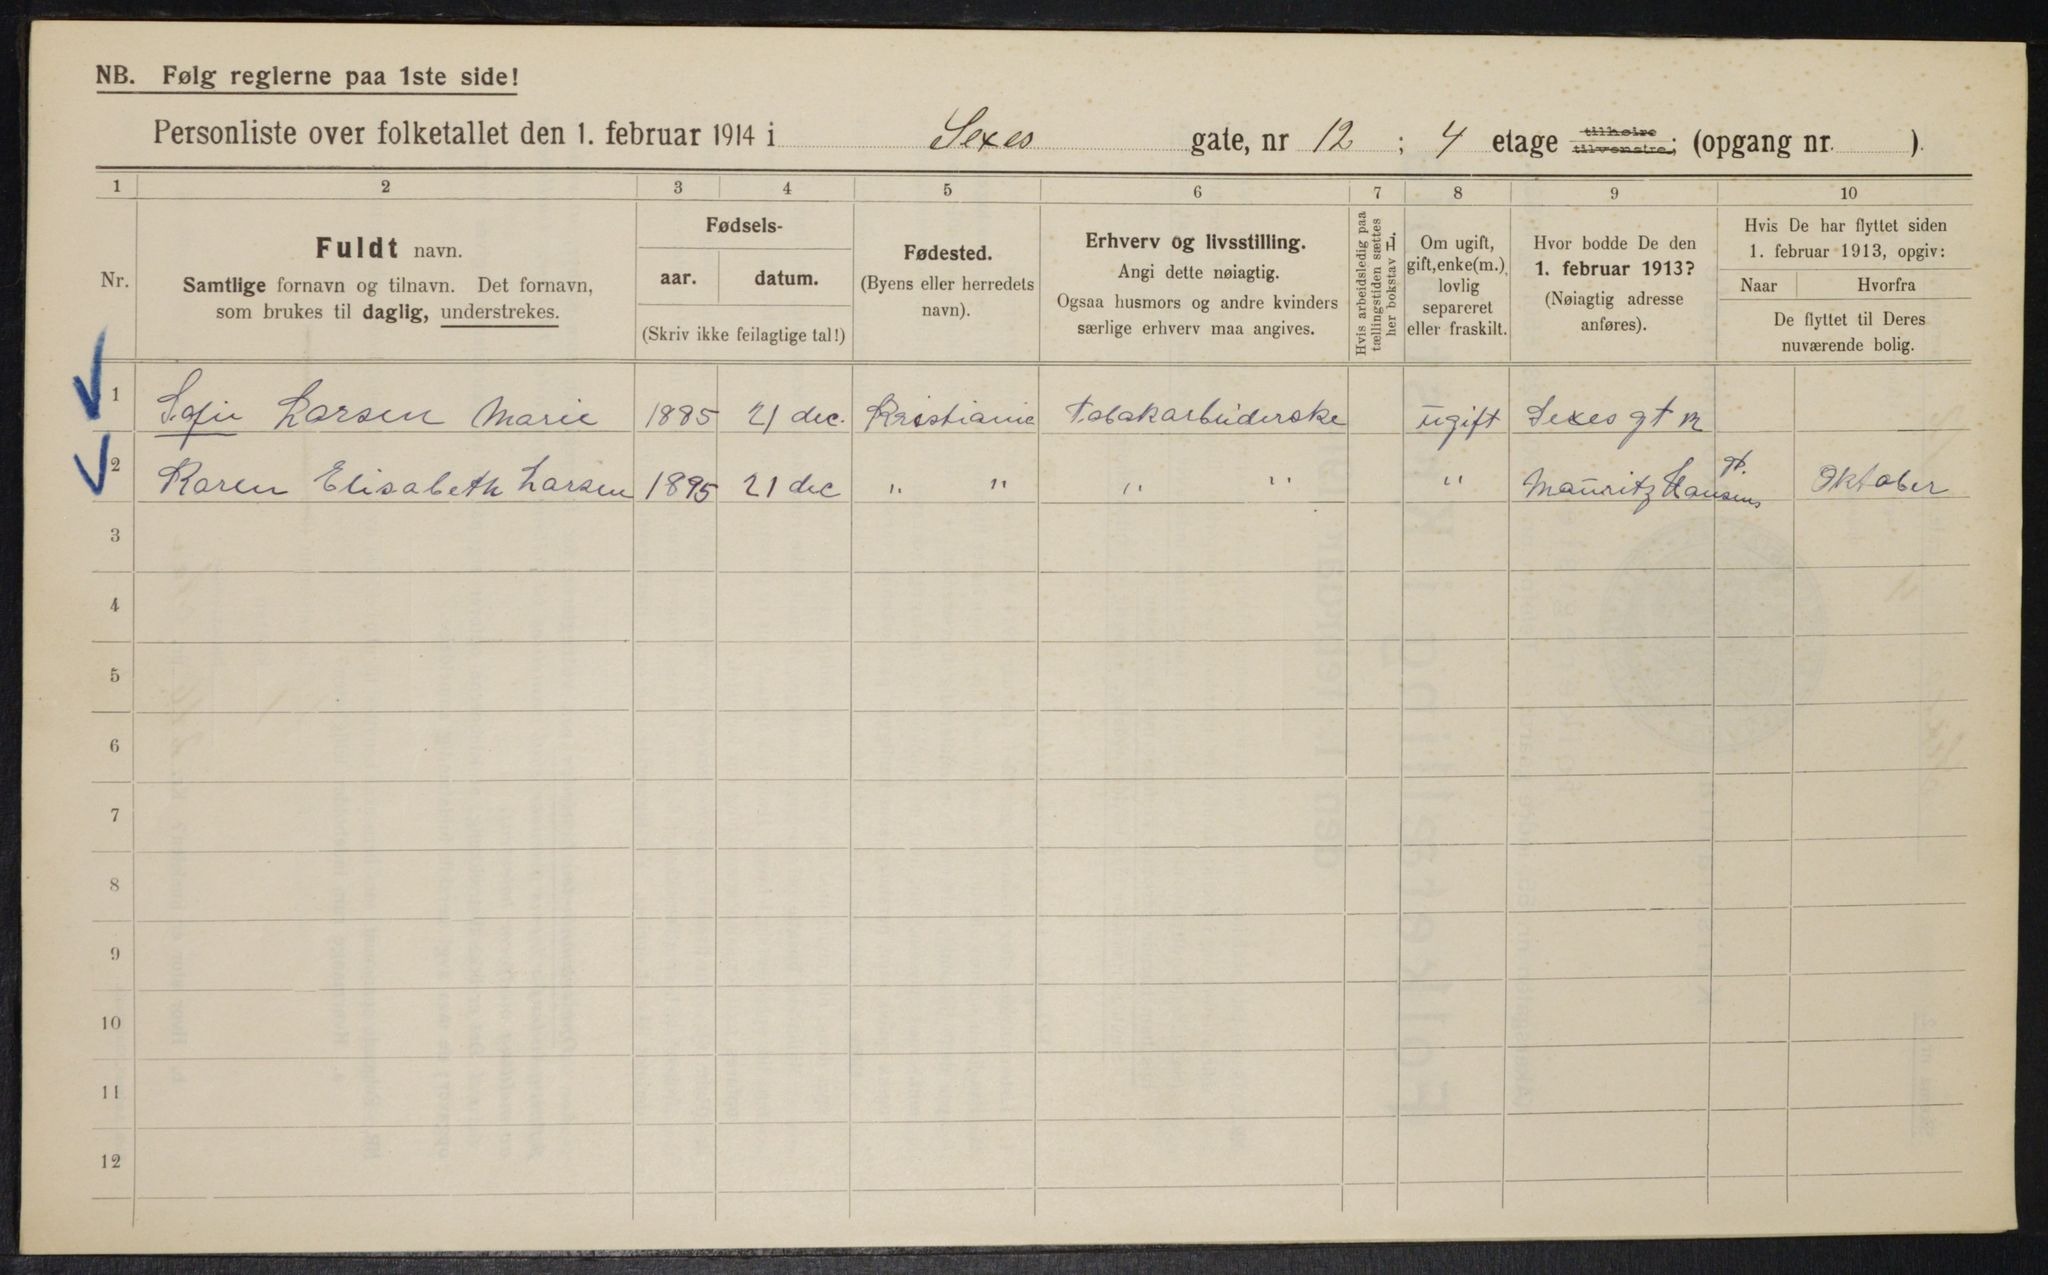 NB. Følg reglerne paa 1ste side!
Personliste over folketallet den 1. februar 1914 i Sexes gate, nr 12 ; 4 etage tilhøire tilvenstre; (opgang nr. ).
1 2 3 4 5 6 7 8 9 10
Nr.
Fuldt navn.
Samtlige fornavn og tilnavn. Det fornavn,
som brukes til daglig, understrekes.
Fødsels-
aar. datum.
(Skriv ikke feilagtige tal!)
Fødested.
(Byens eller herredets
navn).
Erhverv og livsstilling.
Angi dette nøiagtig.
Ogsaa husmors og andre kvinders
særlige erhverv maa angives.
Hvis arbeidsledig paa
tællingstiden sættes
her bokstav L.
Om ugift,
gift, enke(m.),
lovlig
separeret
eller fraskilt.
Hvor bodde De den
1. februar 1913?
(Nøiagtig adresse
anføres).
Hvis De har flyttet siden
1. februar 1913, opgiv:
Naar Hvorfra
De flyttet til Deres
nuværende bolig.
1 Sofie Larsen Marie 1885 21 dec. Kristiania Tobakarbeiderske ugift Sexes gt 12
2 Karen Elisabeth Larsen 1895 21 dec " " " " " Mauritz Hansens gt. Oktober
3
4
5
6
7
8
9
10
11
12